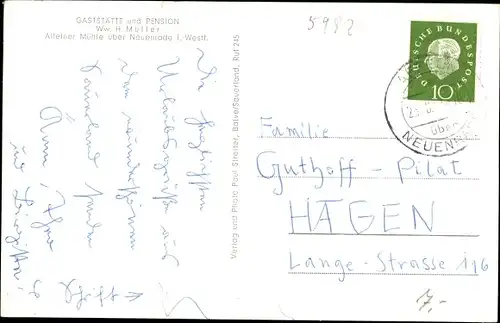 GASTSTÄTTE und PENSION
Ww. H. Müller
Affelner Mühle über Neuenrade i. Westf.
5982
DEUTSCHE BUNDESPOST
10
über
NEUENR
Die herzlichsten
Urlaubsgrüße aus
dem
Sauerland senden
Verlag und Photo Paul Streiter, Balve/Sauerland, Ruf 245
Familie
Guthoff - Pilat
HAGEN
Lange-Strasse 116
7,-